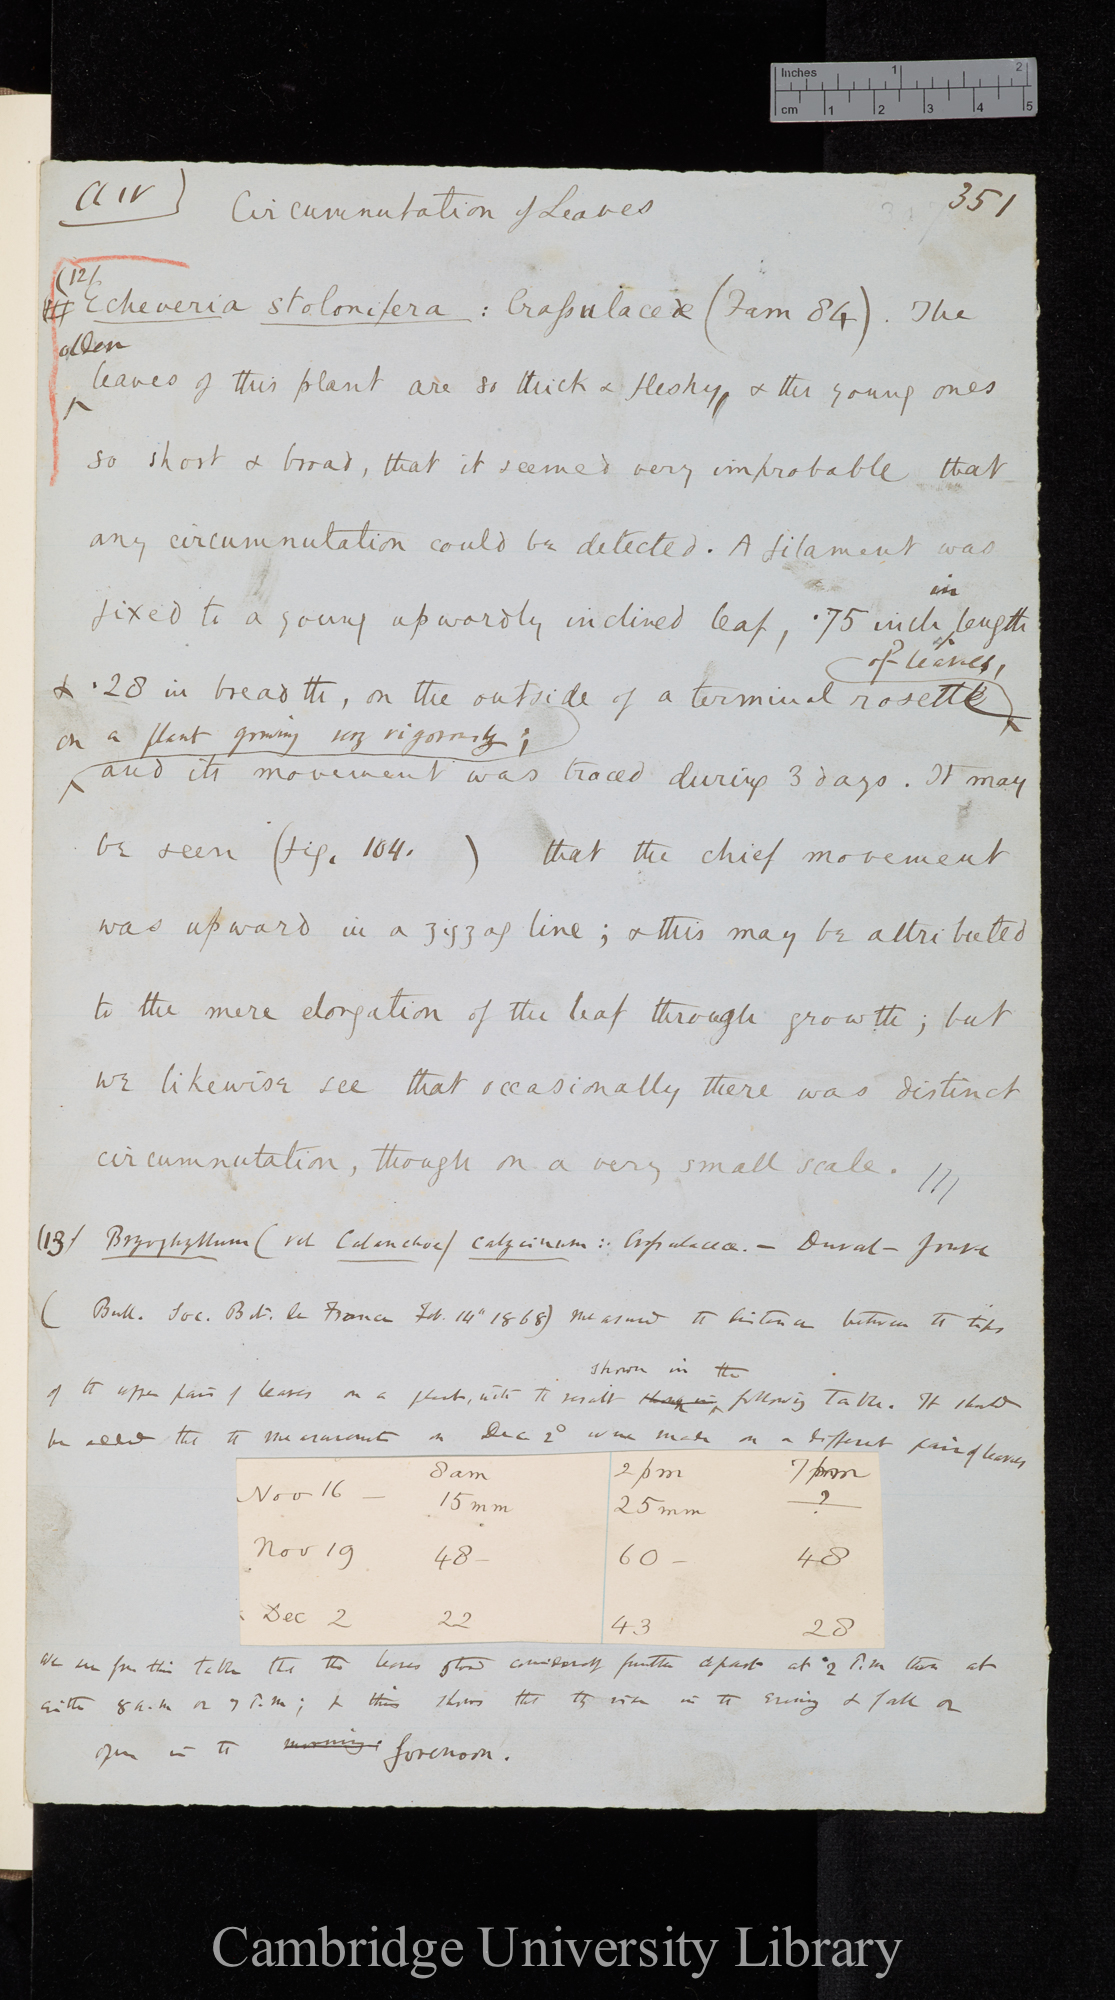 Inches 1 2
cm 1 2 3 4 5
Ch IV)
Circumnutation of Leaves
351
(12)
Echeveria stolonifera : Crassulaceæ (Fam 84). The
older
leaves of this plant are so thick & fleshy, & the young ones
so short & broad, that it seemed very improbable that
any circumnutation could be detected. A filament was
in
fixed to a young upwardly inclined leaf, ·75 inch length
of leaves,
& ·28 in breadth, on the outside of a terminal rosette
on a plant growing very vigorously;
and its movement was traced during 3 days. It may
be seen (fig. 104. ) that the chief movement
was upward in a zigzag line; & this may be attributed
to the mere elongation of the leaf through growth; but
we likewise see that occasionally there was distinct
circumnutation, though on a very small scale.
(13) Bryophyllum (vel Calanchoe) calycinum : Crassulaceæ. – Duval-Jouve
(Bull. Soc. Bot. de France Feb. 14th 1868) measured the distance between the tips
shown in the
of the upper pair of leaves on a plant, with the result following Table. It should
be noted that the measurements on Dec 2º were made on a different pair of leaves
8am 2pm 7pm
Nov 16 – 15mm 25mm ?
Nov 19 48– 60– 48
Dec 2 22 43 28
We see from this table that the leaves stood considerably further apart at 2 P.m than at
either 8 a.m or 7 P.m; & this shows that they rise in the evening & fall or
open in the morning. forenoon.